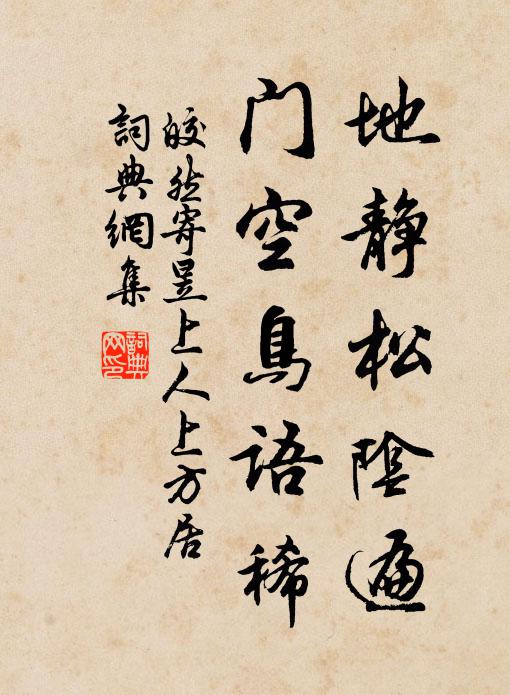 地静松陰遍
门空鳥語稀
皎然寄昱上人上方居
詞典網集
詞典网印